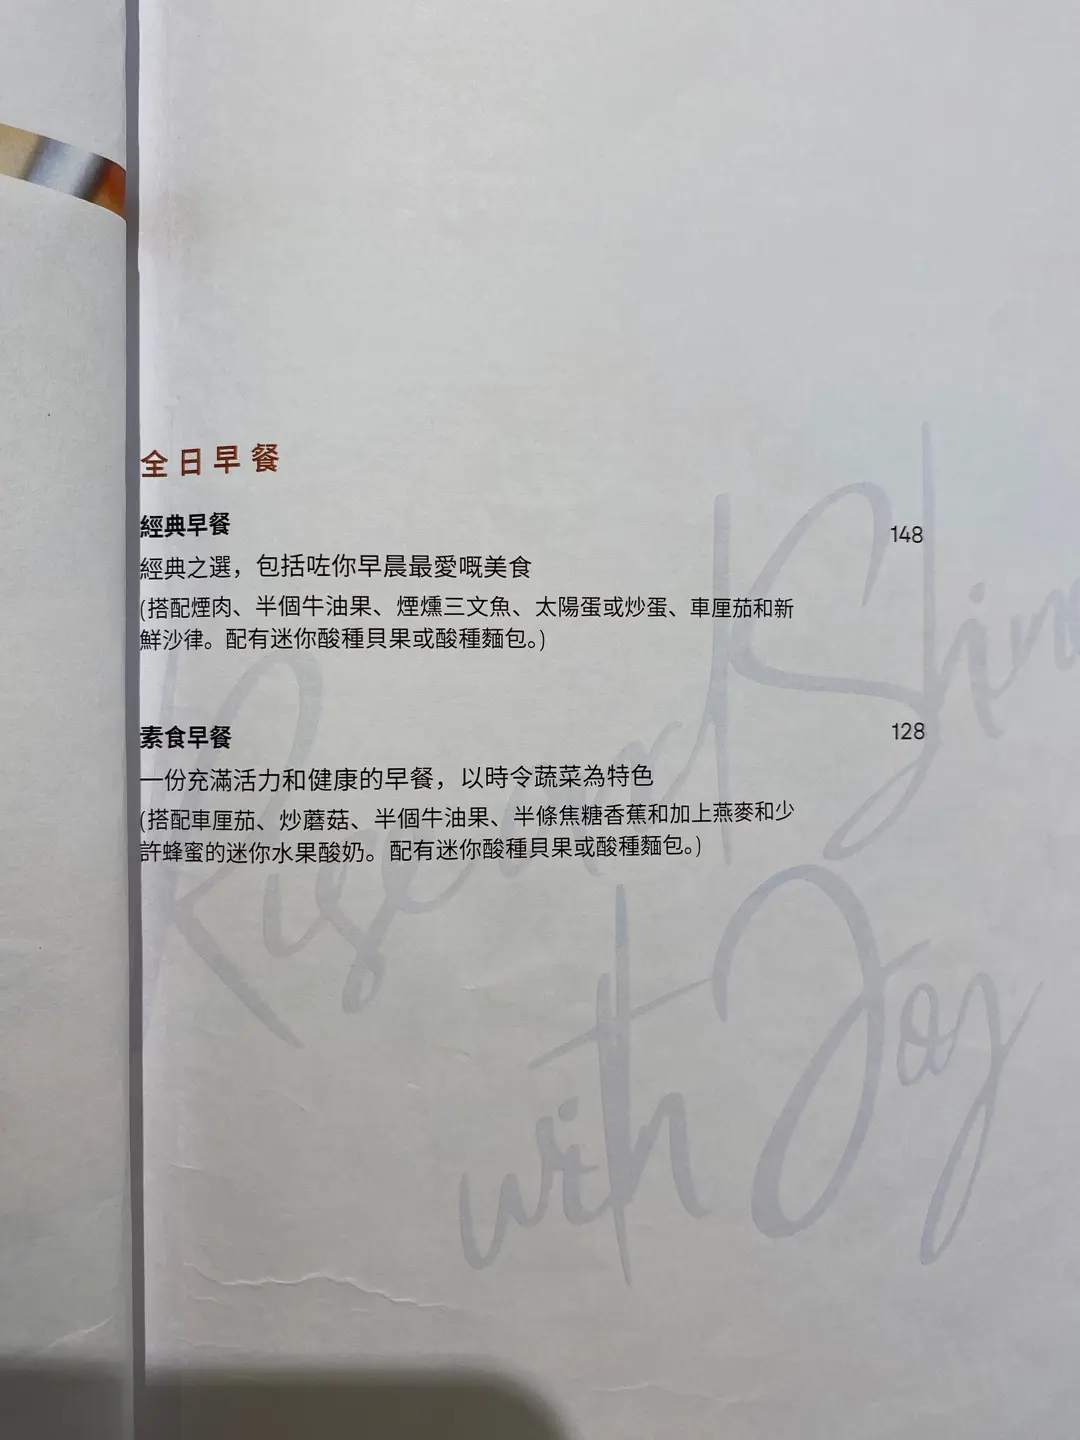 全日早餐
經典早餐
148
經典之選，包括咗你早晨最愛嘅美食
(搭配煙肉、半個牛油果、煙燻三文魚、太陽蛋或炒蛋、車厘茄和新
鮮沙律。配有迷你酸種貝果或酸種麵包。)
素食早餐
128
一份充滿活力和健康的早餐，以時令蔬菜為特色
(搭配車厘茄、炒蘑菇、半個牛油果、半條焦糖香蕉和加上燕麥和少
許蜂蜜的迷你水果酸奶。配有迷你酸種貝果或酸種麵包。)
Rise and
with Joy